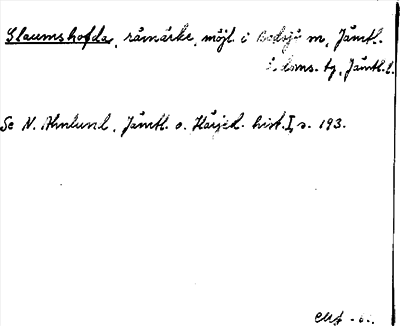 Slaumshofda, råmärke, möjl. i Bodsjö sn, Jämtl.
tg, Jämtl. l.
Se N. Ahnlund, Jämtl. o. Härjed. hist. I, s. 193.